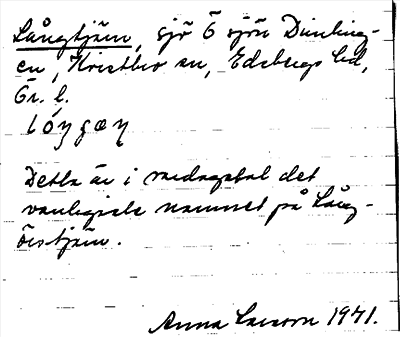 Långtjärn, sjö Ö sjön Dunling-
en, Hvistbro sn, Edsbergs hd,
Ör. l.
Detta är i vardagstal det
vanligaste namnet på Lång-
örstjärn.
Anna Larsson 1941.